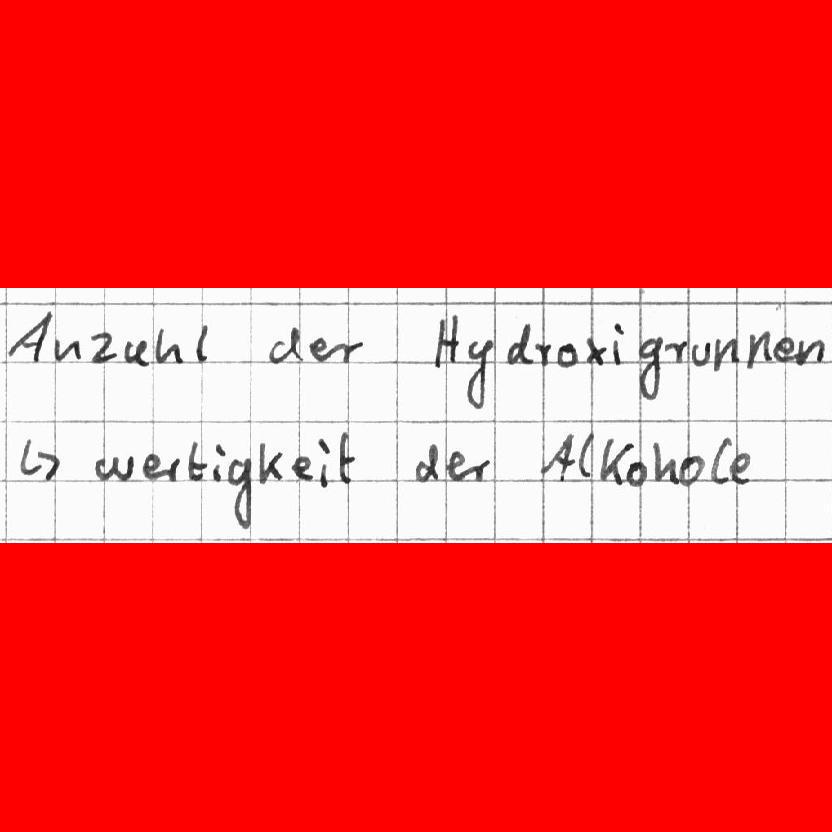 Anzahl der Hydroxigruppen
↳ wertigkeit der Alkohole